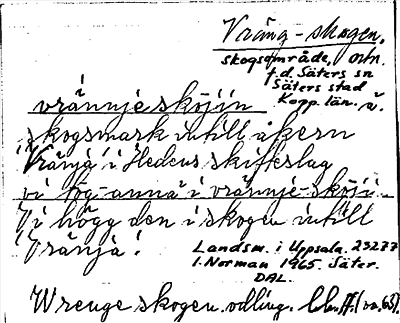 Vräng-skogen.
skogsområde, ortn.
f.d. Säters sn
Säters stad
Kopp. län.
vrännjesköjin
skogsmark intill åkern
"Vränja" i Hedens skifteslag
vi tog-anna i vrännje-sköjin
Vi högg den i skogen intill
"Vränja".
Landsm. i Uppsala. 25277
I. Norman 1965. Säter.
DAL.
Wrenge skogen. odling.